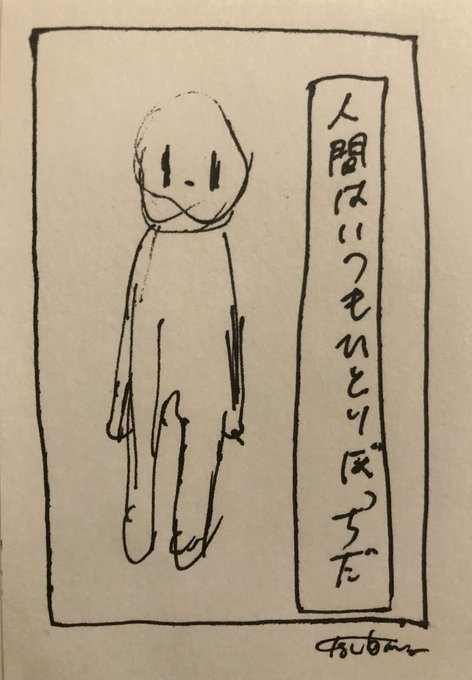 人間はいつもひとりぼっちだ